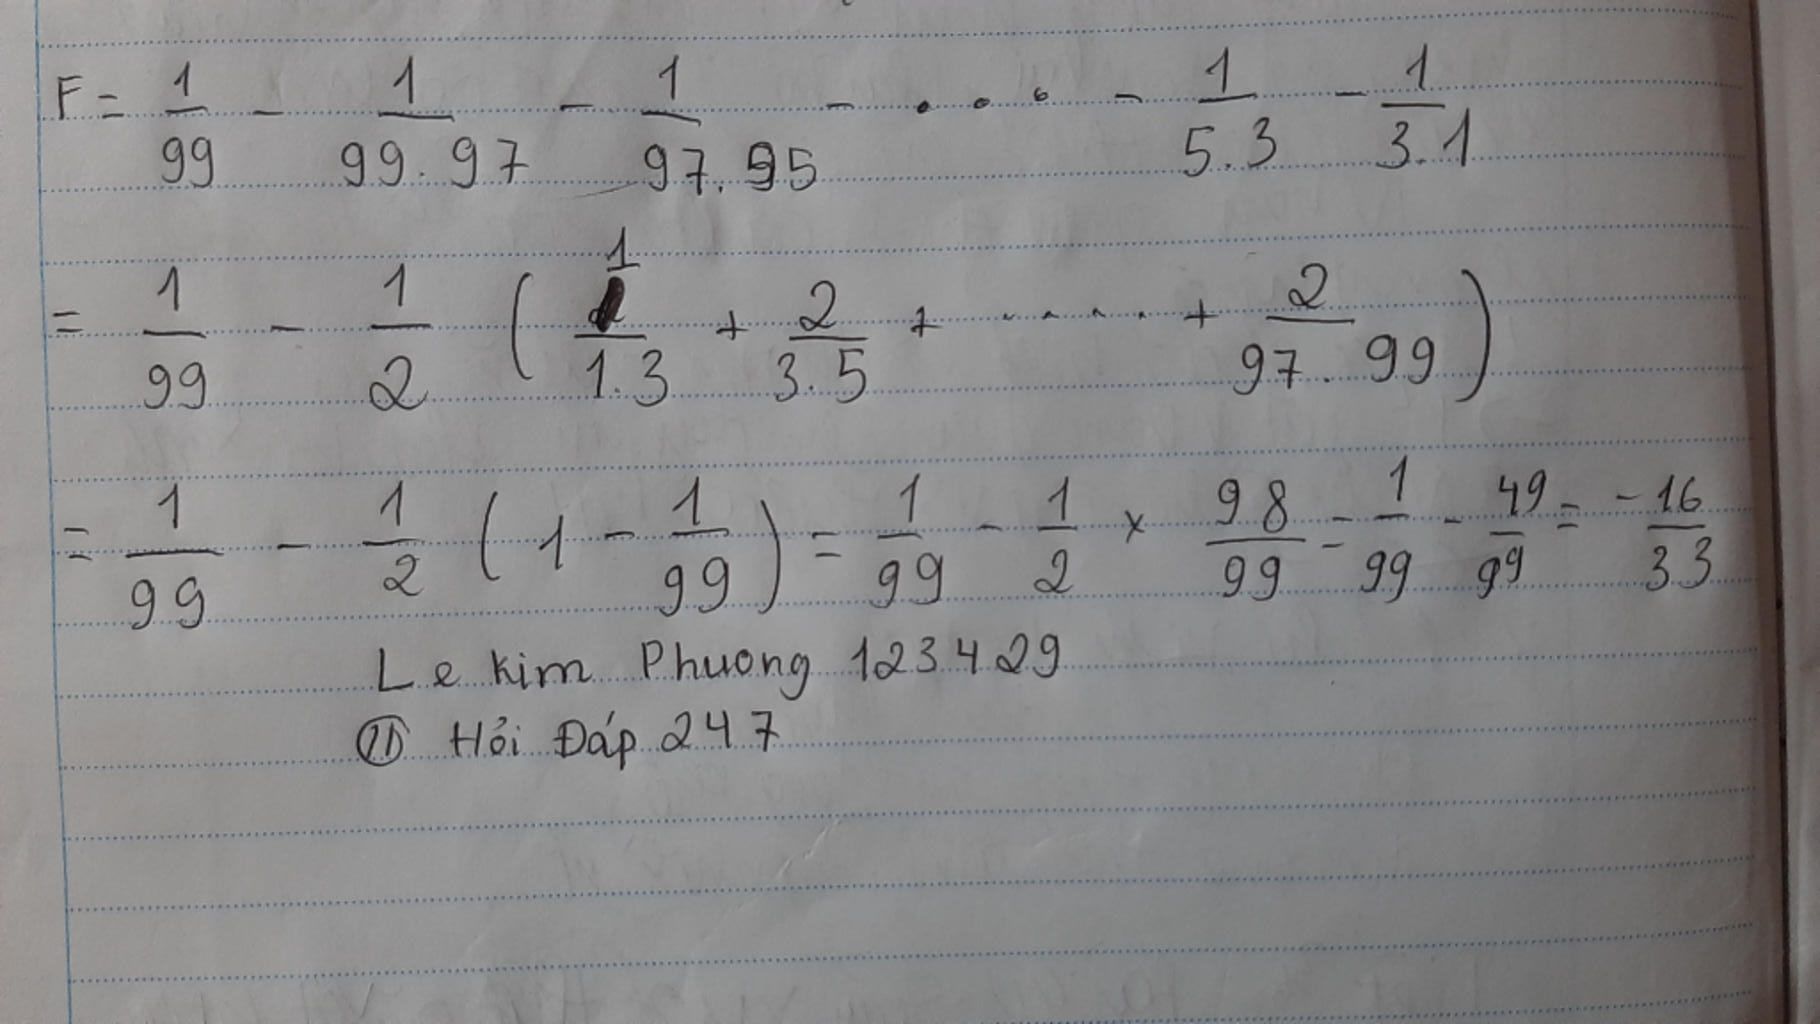 F = 1/99 - 1/99.97 - 1/97.95 - ... - 1/5.3 - 1/3.1
= 1/99 - 1/2 ( 1/1.3 + 2/3.5 + ..... + 2/97.99 )
= 1/99 - 1/2 ( 1 - 1/99 ) = 1/99 - 1/2 × 98/99 = 1/99 - 49/99 = -16/33
Le Kim Phuong 123429
Hỏi Đáp 247